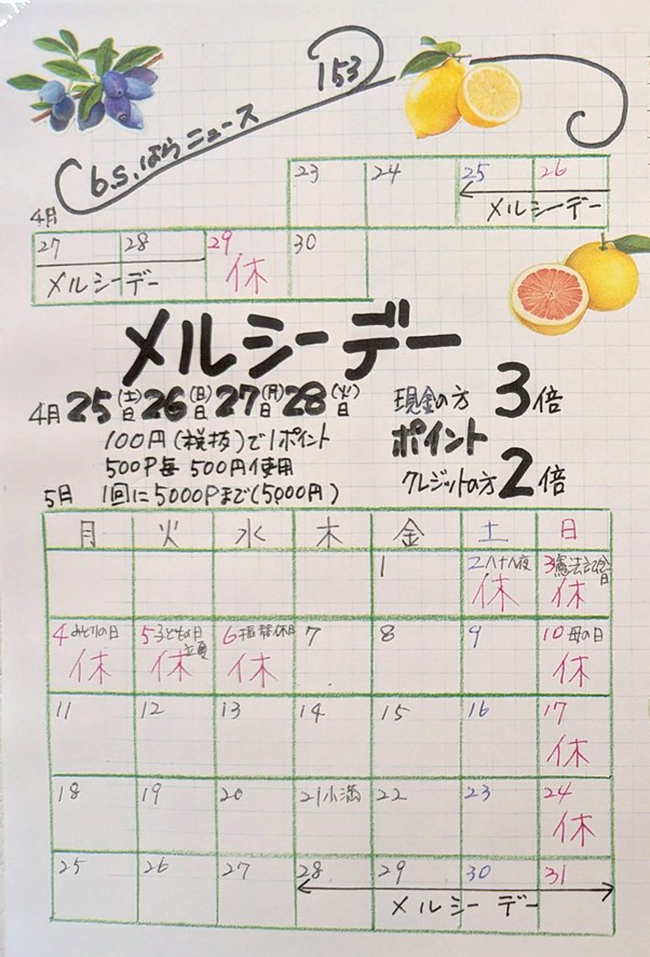 153
b.s.はらニュース
23 24 25 26
メルシーデー
4月
27 28 29 30
メルシーデー 休
メルシーデー
4月25(土)日26(日)日27(月)日28(火)日
現金の方 3倍
100円(税抜)で1ポイント
ポイント
500P毎 500円使用
クレジットの方 2倍
5月 1回に5000Pまで(5,000円)
月 火 水 木 金 土 日
1 2八十八夜 3憲法記念日
休 休
4みどりの日 5子どもの日 立夏 6振替休日 7 8 9 10母の日
休 休 休 休
11 12 13 14 15 16 17
休
18 19 20 21小満 22 23 24
休
25 26 27 28 29 30 31
メルシーデー